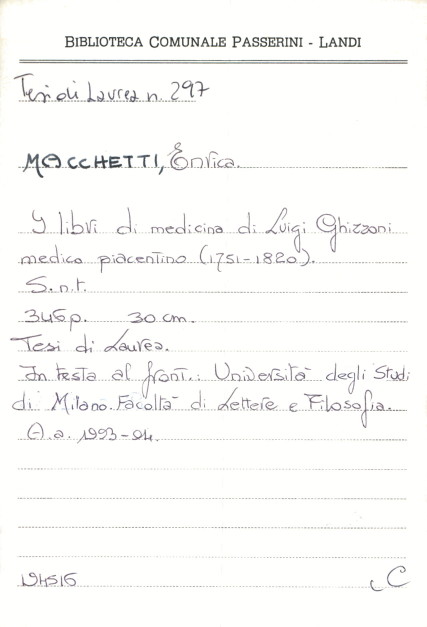 BIBLIOTECA COMUNALE PASSERINI - LANDI
Tesi di Laurea n. 297
MACCHETTI, Enrica.
I libri di medicina di Luigi Ghizzoni
medico piacentino (1751-1820).
S.n.t.
346p. 30 cm.
Tesi di Laurea.
In testa al front.: Università degli Studi
di Milano. Facoltà di Lettere e Filosofia.
A.a. 1993-94.
C